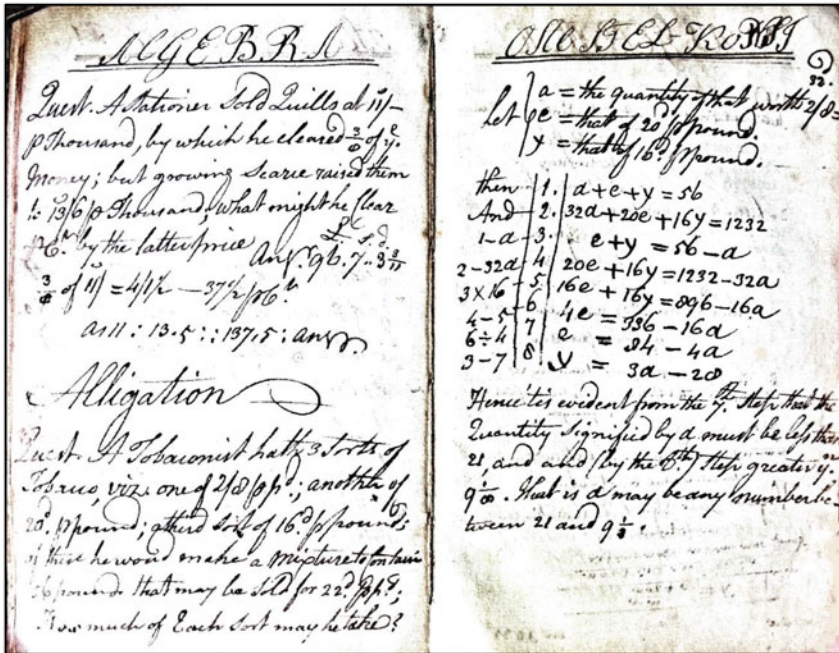 ALGEBRA
Quest. A Stationer Sold Quills at 11/-
p Thousand, by which he cleared 3/8 of ye.
Money; but growing Scarce raised them
to 13/6 p Thousand; what might he Clear
pCt. by the latter price
£ s. d.
Ansr. 96.7..3 3/11
3/8 of 11/ = 4/1 1/2 — 37 1/2 pCt.
as 11 : 13.5 :: 137.5 : ansr.
Alligation
Quest. A Tobaconist hath 3 Sorts of
Tobaco, viz. one of 2/8 p pd.; another of
20d. p pound; a third Sort of 16d p pound;
of these he would make a Mixture to Contain
56 pounds that may be Sold for 22d. p pd.;
How much of Each Sort may he take?
32.
let a = the quantity of that worth 2/8
e = that of 20d. p pound.
y = that of 16d. p pound.
then 1. a + e + y = 56
And 2. 32a + 20e + 16y = 1232
1 - a - 3. e + y = 56 - a
2 - 32a - 4 20e + 16y = 1232 - 32a
3 × 16 - 5 16e + 16y = 896 - 16a
4 - 5 - 6 4e = 336 - 16a
6 ÷ 4 7 e = 84 - 4a
3 - 7 8 y = 3a - 28
Hence tis evident from the 7th. Step that the
Quantity Signified by a must be less than
21, and and (by the 8th.) Step greater yn
9 1/3. that is a may be any number be-
tween 21 and 9 1/3.